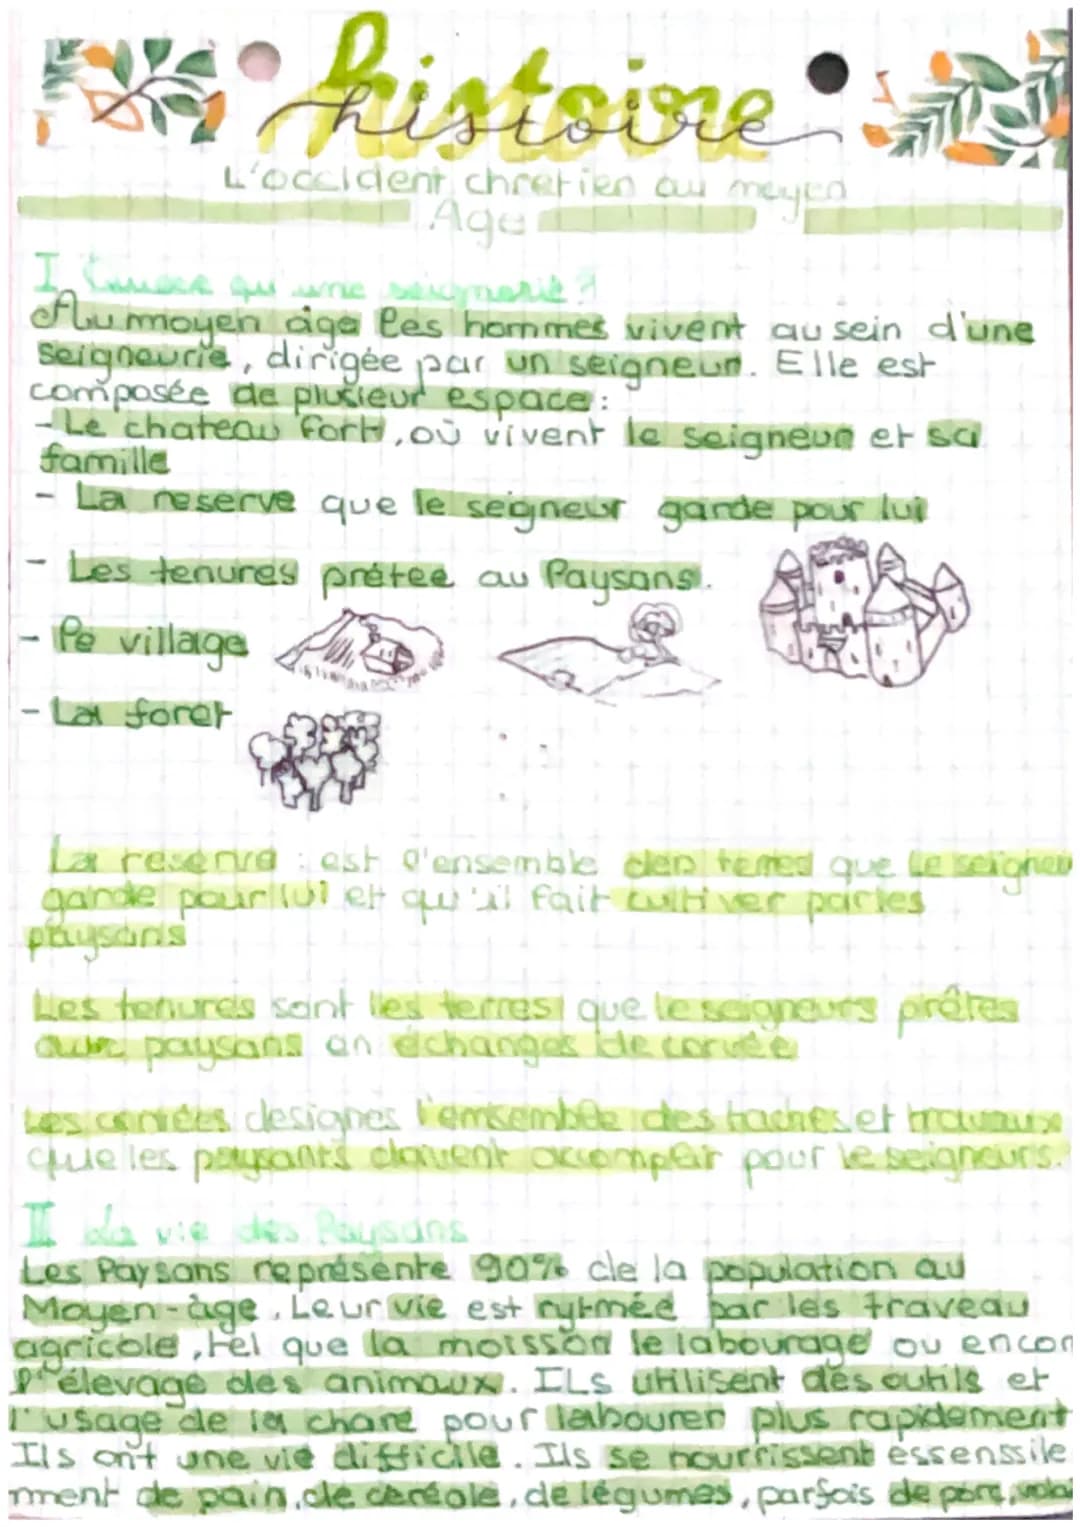 histoire
histoire
L'occident chretien au moyen
Age
I qu une seignerie ?
Au moyen âge les hommes vivent au sein d'une
seigneurie, dirigée par un seigneur. Elle est
composée de plusieur espace :
- Le chateau fort, où vivent le seigneur et sa
famille
- La reserve que le seigneur garde pour lui
- Les tenures prétée au Paysans.
- le village
- La foret
La reserve : est l'ensemble des terres que le seigneu
garde pour lui et qu'il fait cultiver par les
paysans
Les tenures sont les terres que le seigneurs prêtes
aux paysans en échanges de corvée
Les corvées designes l'emsemble des taches et travaux
que les paysants doivent accomplir pour le seigneurs.
II La vie des Paysans
Les Paysans représente 90% de la population au
Moyen-âge. Leur vie est rytmée par les traveau
agricole, tel que la moisson le labourage ou encor
l'élevage des animaux. ILs utilisent des outils et
l'usage de la chare pour labourer plus rapidement
Ils ont une vie difficile. Ils se nourrissent essenssile
mment de pain, de céréale, de légumes, parfois de porc, vola